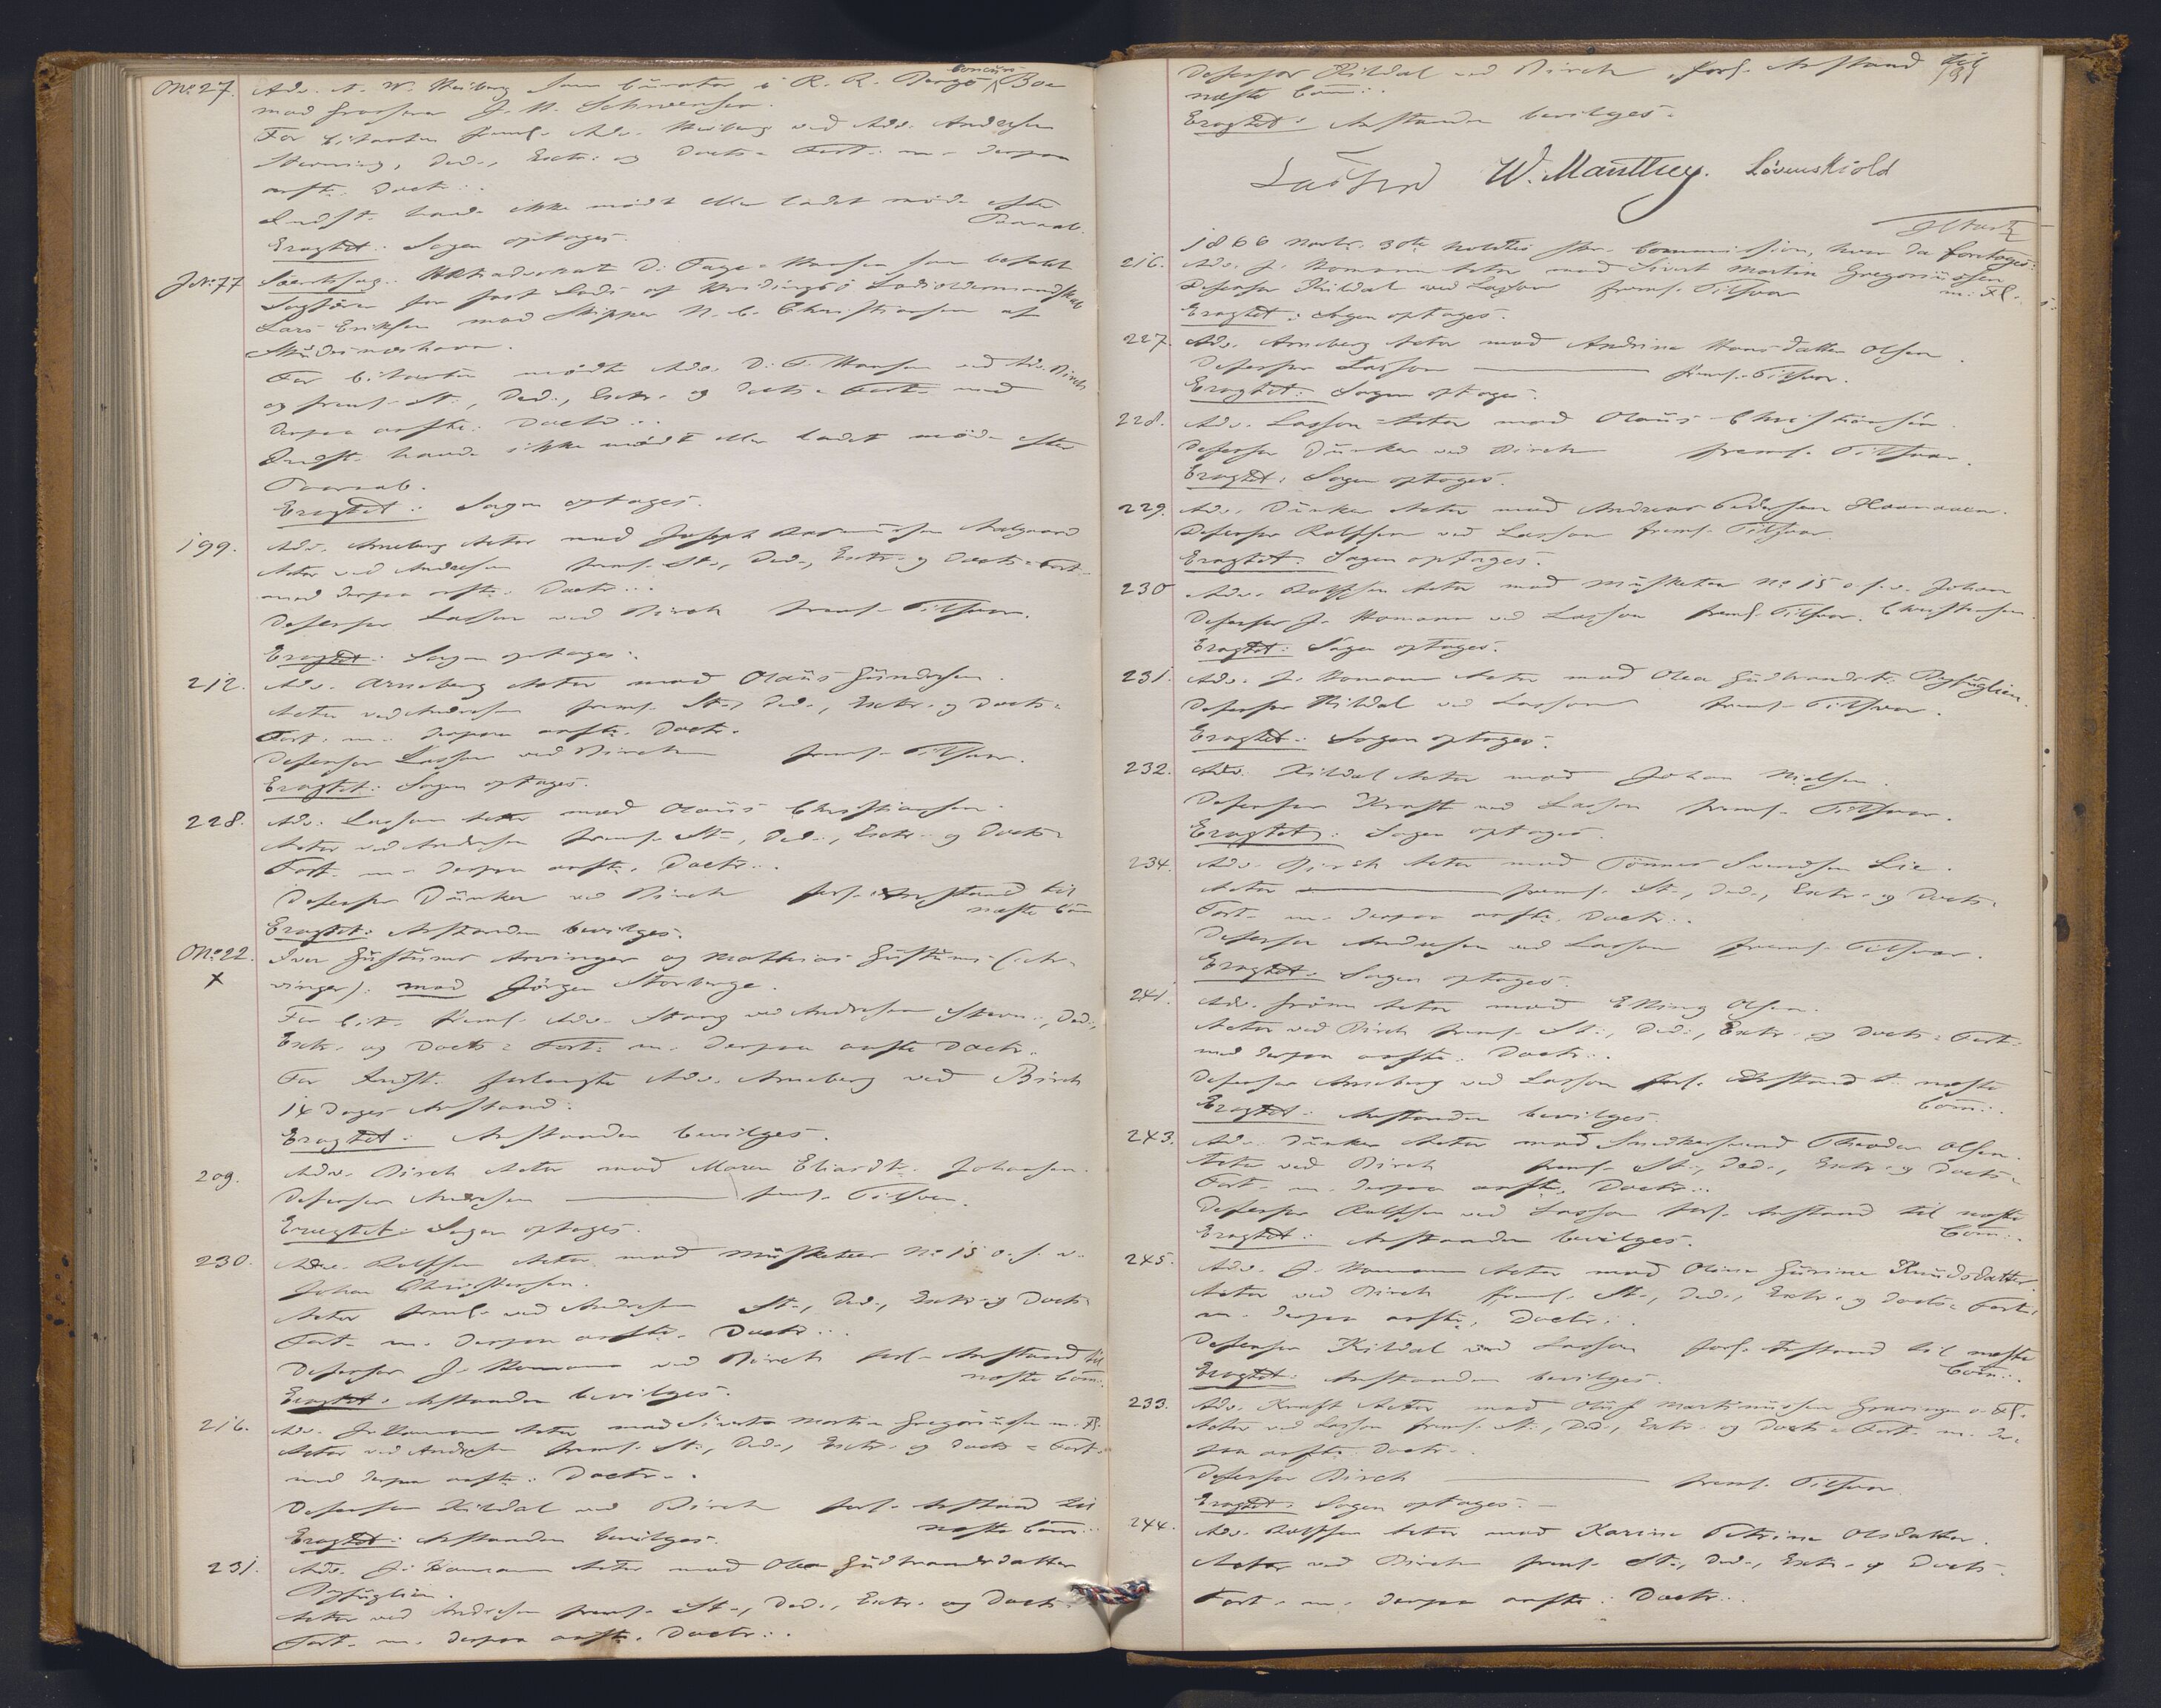 No 27. Adv. A. W. Heiberg som Curator i R. R. Concurs Boe
mod J. N. Schwensen.
For Citanten frems. Adv. Heiberg ved Adv. Andresen
Stevning, Ded., Extr. og Docts. Fort. m. derpaa
anfte. Doct..
Indst. havde ikke mødt eller ladet møde efter
Paaraab.
Eragtet: Sagen optages.
J No 77 D. Fage. Hansen som befalet
Sagfører for fast Lods af
Lars Eriksen mod Skipper N. C. Christiansen af
Skudesnæshavn.
For Citanten mødte Adv. D. F. Hansen ved Adv. Birch
og frems. St., Ded., Extr. og Docts. Fort. med
derpaa anfte. Doctr..
Indst. havde ikke mødt eller ladet møde efter
Paaraab.
Eragtet: Sagen optages.
199. Adv. Arneberg Actor mod Joseph Rasmussen Aalgaard
Actor ved Andresen frems. St., Ded., Extr. og Docts. Fort.
med derpaa anfte. Doctr..
Defensor Lasson ved Birch frems. Tilsvar.
Eragtet: Sagen optages.
212. Adv. Arneberg Actor mod Olaüs Gundersen.
Actor ved Andresen frems. St., Ded., Extr. og Docts.
Fort. m. derpaa anfte. Doctr.
Defensor Lasson ved Birch frems. Tilsvar.
Eragtet: Sagen optages.
228. Adv. Lasson Actor mod Olaüs Christiansen.
Actor ved Andresen frems. St., Ded., Extr. og Docts.
Fort. m. derpaa anfte. Doctr..
Defensor Dünker ved Birch forl. Anstand til
næste Com
Eragtet: Anstanden bevilges.
No 22. Iver Arvinger og Mathias (Ar-
X vinger): mod Jörgen Storberge.
For Cit. frems. Adv. Stang ved Andresen Stevn., Ded.,
Extr. og Docts. Fort. m. derpaa anfte Doctr.
For Indst. forlangte Adv. Arneberg ved Birch
14 Dages Anstand.
Eragtet: Anstanden bevilges.
209. Adv. Birch Actor mod Maren Eliasdt. Johansen.
Defensor Andresen — frems. Tilsvar.
Eragtet: Sagen optages.
230. Adv. Rolfsen Actor mod Müsketeer No 15 o. s. v.
Johan Christensen.
Actor frems. ved Andresen St., Ded., Extr. og Docts.
Fort. m. derpaa anfte. Doctr..
Defensor J. Homann ved Birch forl. Anstand til
næste Com.
Eragtet: Anstanden bevilges.
216. Adv. J. Homann Actor mod Sivert Martin Gregoriusen m. Fl.
Actor ved Andresen frems. St., Ded., Extr. og Docts. Fort.
med derpaa anfte. Doctr..
Defensor Kildal ved Birch forl. Anstand til
næste Com.
Eragtet: Anstanden bevilges.
231. Adv. J. Homann Actor mod Olea Gudbrandsdatter
Byfuglien.
Actor ved Andresen frems. St., Ded., Extr. og Docts.
Fort. m. derpaa anfte. Doctr..
Defensor Kildal ved Birch, forl. Anstand til
næste Com.
Eragtet: Anstanden bevilges.
Lasson W. Manthey. Lövenskiold
1866 Novbr. 30te holdtes Commission, hvor da foretoges:
216. Adv. J. Homann Actor mod Sivert Martin Gregoriussen
m. Fl.
Defensor Kildal ved Lasson frems. Tilsvar
Eragtet: Sagen optages.
227. Adv. Arneberg Actor mod Andrine Hansdatter Olsen.
Defensor Lasson — frems. Tilsvar.
Eragtet: Sagen optages.
228. Adv. Lasson Actor mod Olaüs Christiansen.
Defensor Dünker ved Birch frems. Tilsvar.
Eragtet: Sagen optages.
229. Adv. Dünker Actor mod Andreas Pedersen
Defensor Rolfsen ved Lasson frems. Tilsvar.
Eragtet: Sagen optages.
230 Adv. Rolfsen Actor mod Müsketeer No 15 o. s. v. Johan
Christensen.
Defensor J. Homann ved Lasson frems. Tilsvar.
Eragtet: Sagen optages.
231. Adv. J. Homann Actor mod Olea Gudbrandsdt. Byfuglien.
Defensor Kildal ved Lasson frems. Tilsvar.
Eragtet: Sagen optages.
232. Adv. Kildal Actor mod Johan Nielsen.
Defensor Kraft ved Lasson frems. Tilsvar.
Eragtet: Sagen optages.
234. Adv. Birch Actor mod Tönnes Svendsen Lie.
Actor — frems. St., Ded., Extr. og Docts.
Fort. m. derpaa anfte. Doctr..
Defensor Andresen ved Lasson frems. Tilsvar.
Eragtet: Sagen optages.
241. Adv. Grönn Actor mod Elling Olsen.
Actor ved Birch frems. St., Ded., Extr. og Docts. Fort.
med derpaa anfte. Doctr..
Defensor Arneberg ved Lasson forl. Anstand t. næste
Com..
Eragtet: Anstanden bevilges.
243. Adv. Dünker Actor mod Snedkersvend Theodor Olsen.
Actor ved Birch frems. St., Ded., Extr. og Docts.
Fort. m. derpaa anfte. Doctr..
Defensor Rolfsen ved Lasson forl. Anstand til næste
Com..
Eragtet: Anstanden bevilges.
245. Adv. J. Homann Actor mod Oline Gurine Knudsdatter.
Actor ved Birch frems. St., Ded., Extr. og Docts. Fort.
m. derpaa anfte. Doctr..
Defensor Kildal ved Lasson forl. Anstand til næste
Com..
Eragtet: Anstanden bevilges.
233. Adv. Kraft Actor mod Oluf Martinussen o. Fl.
Actor ved Lasson frems. St., Ded., Extr. og Docts. Fort. m. der-
paa anfte. Doctr..
Defensor Birch — frems. Tilsvar.
Eragtet: Sagen optages.
244. Adv. Rolfsen Actor mod Karine Petrine Olsdatter.
Actor ved Birch frems. St., Ded., Extr. og Docts.
Fort. m. derpaa anfte. Doctr..